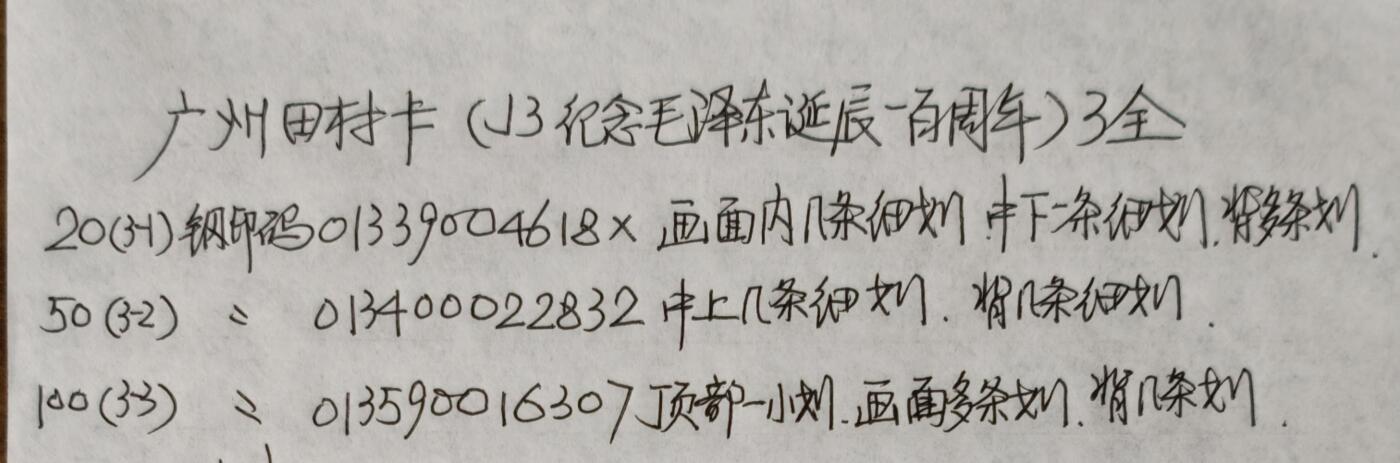 广州田村卡（J3纪念毛泽东诞辰一百周年）3全
20(3-1)钢印码01339004618× 画面内几条细划.中下一条细划.背多条划.
50(3-2) 〃 013400022832 中上几条细划.背几条细划.
100(3-3) 〃 013590016307顶部一小划.画面多条划.背几条划.